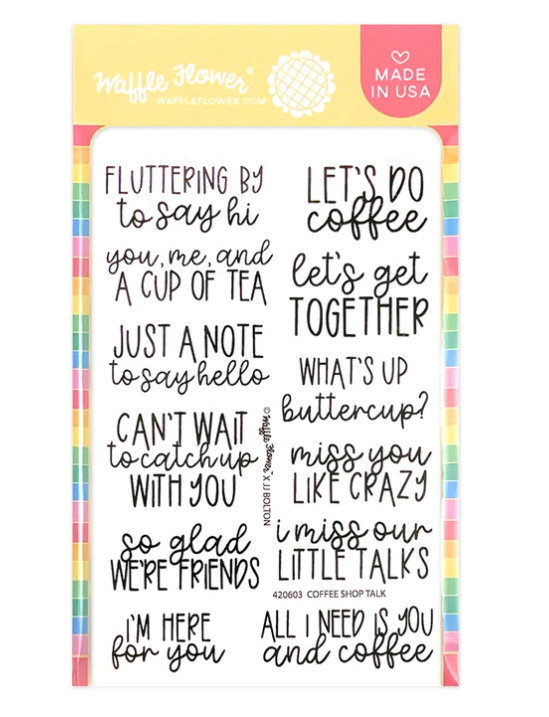 Waffle Flower
WAFFLEFLOWER.COM
MADE
IN USA
FLUTTERING BY
to say hi
you, me, and
A CUP OF TEA
JUST A NOTE
to say hello
CAN'T WAIT
to catch up
WITH YOU
so glad
WE'RE FRIENDS
I'M HERE
for you
© Waffle Flower X JJ BOLTON
LET'S DO
coffee
let's get
TOGETHER
WHAT'S UP
buttercup?
miss you
LIKE CRAZY
i miss our
LITTLE TALKS
420603 COFFEE SHOP TALK
ALL I NEED IS YOU
and coffee